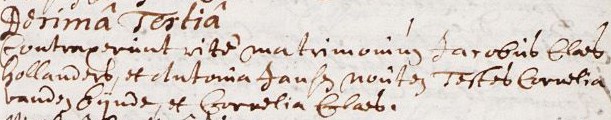 Decimâ Tertiâ
Contraxerunt ritè matrimonium Jacobus Claes
Hollanders, et Antonia Jansen nouten Testes Cornelia
vanden Eijnde, et Cornelia Claes.